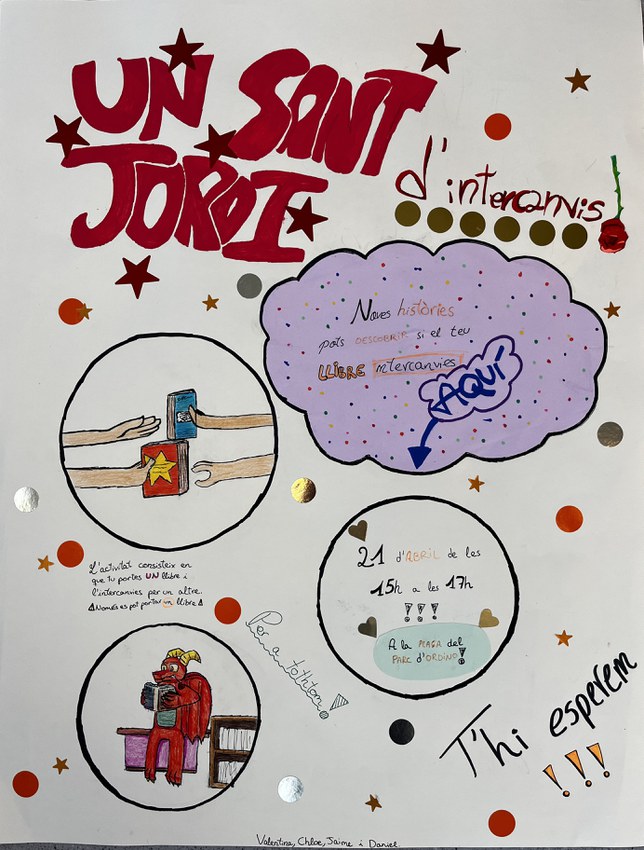 UN SANT
JORDI
d'intercanvis
Noves històries
pots DESCOBRIR si el teu
LLIBRE intercanvies
AQUÍ
L'activitat consisteix en
que tu portes UN llibre i
l'intercanvies per un altre.
⚠Només es pot portar un llibre⚠
21 d'ABRIL de les
15h a les 17h
!!!
A la PLAÇA del
PARC d'ORDINO!
Per a tothtom!
T'hi esperem
!!!
Valentina, Chloe, Jaime i Daniel.